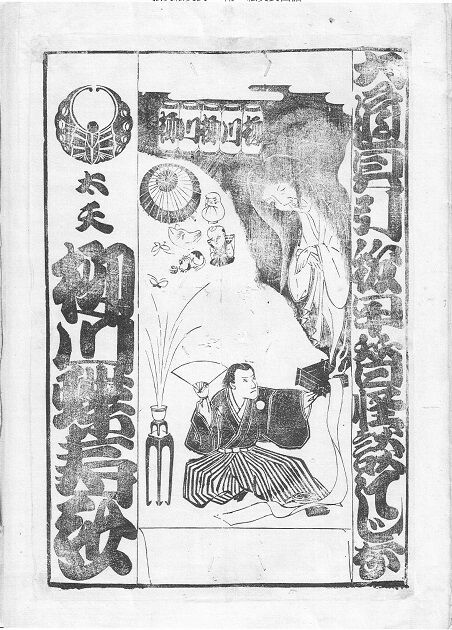 大道具引抜早替怪談てじな
柳川柳川柳
太夫
柳川蝶